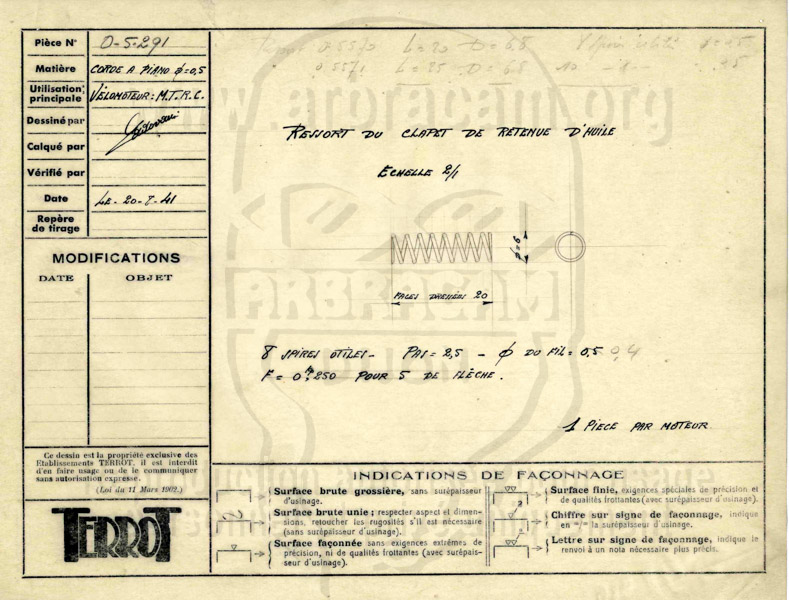 Pièce N° O-5-291
Matière CORDE A PIANO φ=0,5
Utilisation principale VÉLOMOTEUR: M.T.R.C.
Dessiné par
Calqué par
Vérifié par
Date LE-20-8-41
Repère de tirage
MODIFICATIONS
DATE OBJET
Ce dessin est la propriété exclusive des
Etablissements TERROT, il est interdit
d'en faire usage ou de le communiquer
sans autorisation expresse.
(Loi du 11 Mars 1902.)
TERROT
0.5570 L=20 D=6,8
0,5571 L=25 D=6,8
www.arbracam.org
RESSORT DU CLAPET DE RETENUE D'HUILE
ÉCHELLE 2/1
φ=6
FACES DRESSÉES 20
ARBRACAM
8 SPIRES UTILES - PAS=2,5 - φ DU FIL=0,5 0,4
F= 0k,250 POUR 5 DE FLÈCHE.
1 PIÈCE PAR MOTEUR
INDICATIONS DE FAÇONNAGE
Surface brute grossière, sans surépaisseur
d'usinage.
Surface brute unie; respecter aspect et dimen-
sions, retoucher les rugosités s'il est nécessaire
(sans surépaisseur d'usinage).
Surface façonnée sans exigences extrêmes de
précision, ni de qualités frottantes (avec surépais-
seur d'usinage).
Surface finie, exigences spéciales de précision et
de qualités frottantes (avec surépaisseur d'usinage).
Chiffre sur signe de façonnage, indique
en m/m la surépaisseur d'usinage.
Lettre sur signe de façonnage, indique le
renvoi à un nota nécessaire plus précis.